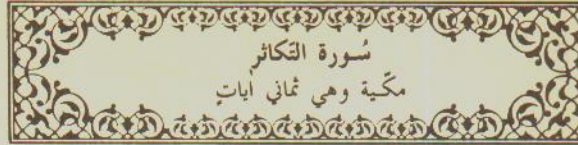 سُورة التّكاثر
مكّية وهي ثماني اٰياتٍ